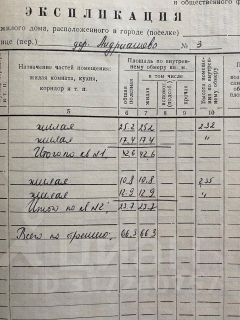 в общественного ф
ЭКСПЛИКАЦИЯ
жилого дома, расположенного в городе (поселке)
ице (пер.) дер. Андрияшево № 3
Назначение частей помещения: жилая комната, кухня, коридор и т. п.
Площадь по внутреннему обмеру кв. м.
в том числе
общая полезная
жилая
прочая
Высота помещения по внутреннему обмеру
5 6 7 8 9 10
жилая 25.2 25.2 2.32
жилая 17.4 17.4 "
Итого по кв №1 42.6 42.6
жилая 10.8 10.8 2.35
жилая 12.9 12.9 "
Итого по кв №2 23.7 23.7
Всего по строению: 66.3 66.3